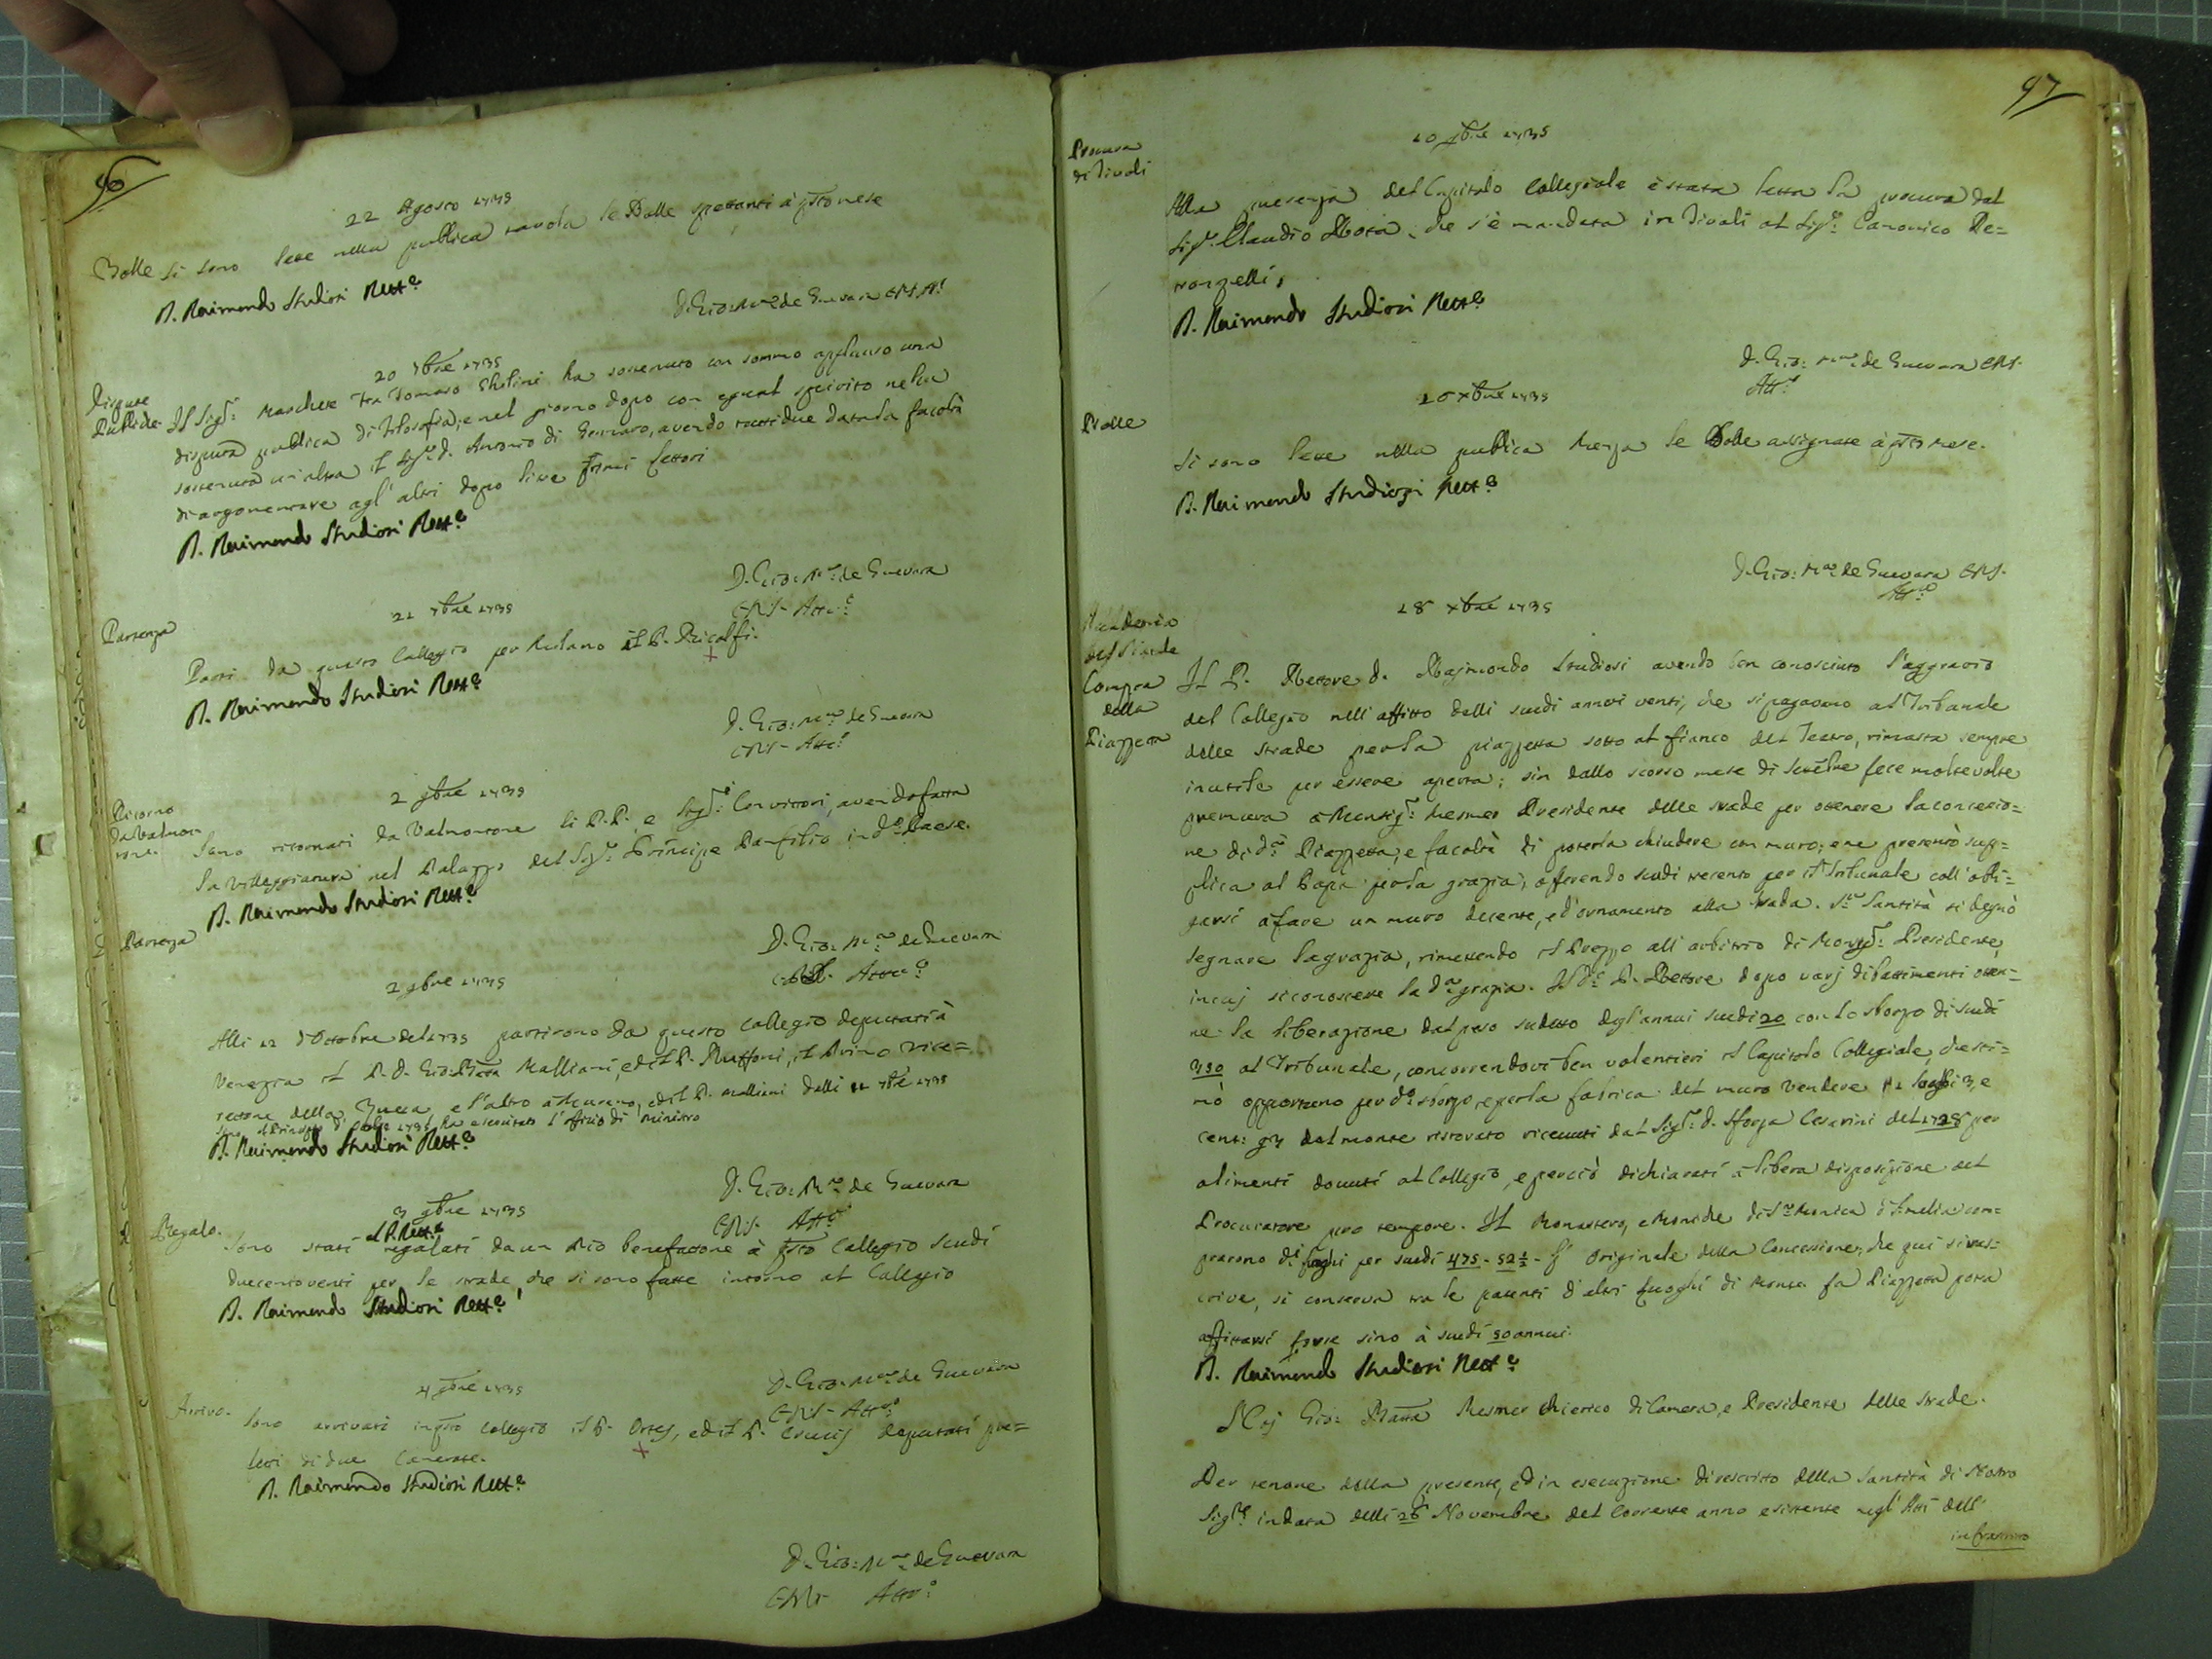 96
22 Agosto 1735
Bolle
Si sono lette nella publica tavola le Bolle spettanti à qsto mese
D. Raimondo Studiosi Rett.e
D. Gio: M.a de Guevara CRS. At.
20 7bre 1735
Dispute
Publiche
Il Sig.r Marchese Fra Tomaso Ghislini ha sostenuto con sommo applauso una
disputa publica di filosofia, e nel giorno dopo con egual spirito ne ha
sostenuta un'altra il Sig.r d. Antonio di Gennaro, avendo tutti due data la facoltà
di argomentare agl'altri dopo li tre primi lettori
D. Raimondo Studiosi Rett.e
D. Gio: M.a de Guevara
CRS. Att.o
21 7bre 1735
Partenza
Partì da questo Collegio per Milano il P. Ricalfi.
D. Raimondo Studiosi Rett.e
D. Gio: M.a de Guevara
CRS. Att.o
2 9bre 1735
Ritorno
da Valmon-
tone.
Sono ritornati da Valmontone li P.P. e Sig.ri Convittori, avendo fatta
la villeggiatura nel Palazzo del Sig.r Principe Panfilio in d.o Paese.
D. Raimondo Studiosi Rett.e
D. Gio: M.a de Guevara
CRS. Att.o
Partenza
2 9bre 1735
Alli 12 d'Ottobre del 1735 partirono da questo Collegio deputati à
Venezia il P. D. Gio: Batta Malliani, ed il P. Ruffoni, il primo vice=
rettore della Zueca, e l'altro a Murano, ed il P. Malliani dalli 7bre 1735
ha esercitato l'offizio di Ministro
D. Raimondo Studiosi Rett.e
D. Gio: M.a de Guevara
CRS. Att.o
3 9bre 1735
Regalo.
al P. Rett.e
Sono stati regalati da un Pio benefattore à qsto Collegio scudi
duecentoventi per le strade, che si sono fatte intorno al Collegio
D. Raimondo Studiosi Rett.e
D. Gio: M.a de Guevara
CRS. Att.o
4 9bre 1735
Arrivo.
Sono arrivati in qsto Collegio il P. Ortes, ed il P. Crucis deputati pre=
fetti di due Camerate.
D. Raimondo Studiosi Rett.e
D. Gio: M.a de Guevara
CRS. Att.o
97
10 9bre 1735
Procura
di Tivoli
Alla presenza del Capitolo Collegiale è stata letta la procura dal
Sig.r Claudio Rosa, che s'è mandata in Tivoli al Sig.r Canonico Re=
D. Raimondo Studiosi Rett.e
D. Gio: M.a de Guevara CRS.
Att.o
20 Xbre 1735
Bolle
Si sono lette nella publica Mensa le Bolle assignate à qsto mese.
D. Raimondo Studiosi Rett.e
D. Gio: M.a de Guevara CRS.
Att.o
28 Xbre 1735
Compra
della
Piazzetta
Il P. Rettore d. Raimondo Studiosi avendo ben conosciuto l'aggravio
del Collegio nell'affitto delli scudi annui venti, che si pagavano al Tribunale
delle strade per la piazzetta sotto al fianco del Teatro, rimasta sempre
inutile per essere aperta; sin dallo scorso mese di Settebre fece molte volte
premura a Monsig.r Mesmer Presidente delle strade per ottenere la concessio=
ne di d.a Piazzetta, e facoltà di poterla chiudere con muro; e ne presentò sup=
plica al Papa per la grazia, offerendo scudi trecento per il Tribunale coll'obli=
garsi à fare un muro decente, e d'ornamento alla strada. S.a Santità si degnò
segnare la grazia, rimettendo il Prezzo all'arbitrio di Monsig.r Presidente,
in cui si conoscesse la d.a grazia. Il d.o P. Rettore dopo varj dibattimenti otten=
ne la liberazione dal peso sudetto degl'annui scudi 20 con lo sborzo di scudi
350 al Tribunale, concorrendovi ben volentieri il Capitolo Collegiale, che sti=
mò opportuno per d.o sborzo, e per la fabrica del muro vendere luoghi 3, e
cent: 93 dal monte ristorato ricevuti dal Sig.r d. Sforza Cesarini del 1728 per
alimenti dovuti al Collegio, e perciò dichiarati à libera disposizione del
Procuratore pro tempore. Il Monastero, e Moniche di S.a Monica d'Amelia com=
prarono dì luoghi per scudi 475 - 52½ - L'originale della Concessione, che qui si tras=
crive, si conserva tra le patenti d'altri luoghi di Monte. La Piazzetta potrà
affittarsi forse sino à scudi 50 annui.
D. Raimondo Studiosi Rett.e
Noj Gio: Batta Mesmer Chierico di Camera, e Presidente delle strade.
Per tenore della presente, ed in esecuzione di rescritto della Santità di Nostro
Sig.re in data delli 26 Novembre del Corrente anno esistente negl'Atti dell'
infratto